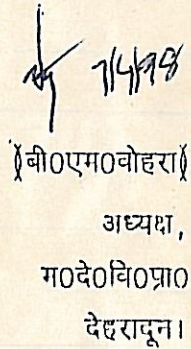 7/4/98
(बी0एम0वोहरा)
अध्यक्ष,
म0दे0वि0प्रा0
देहरादून।